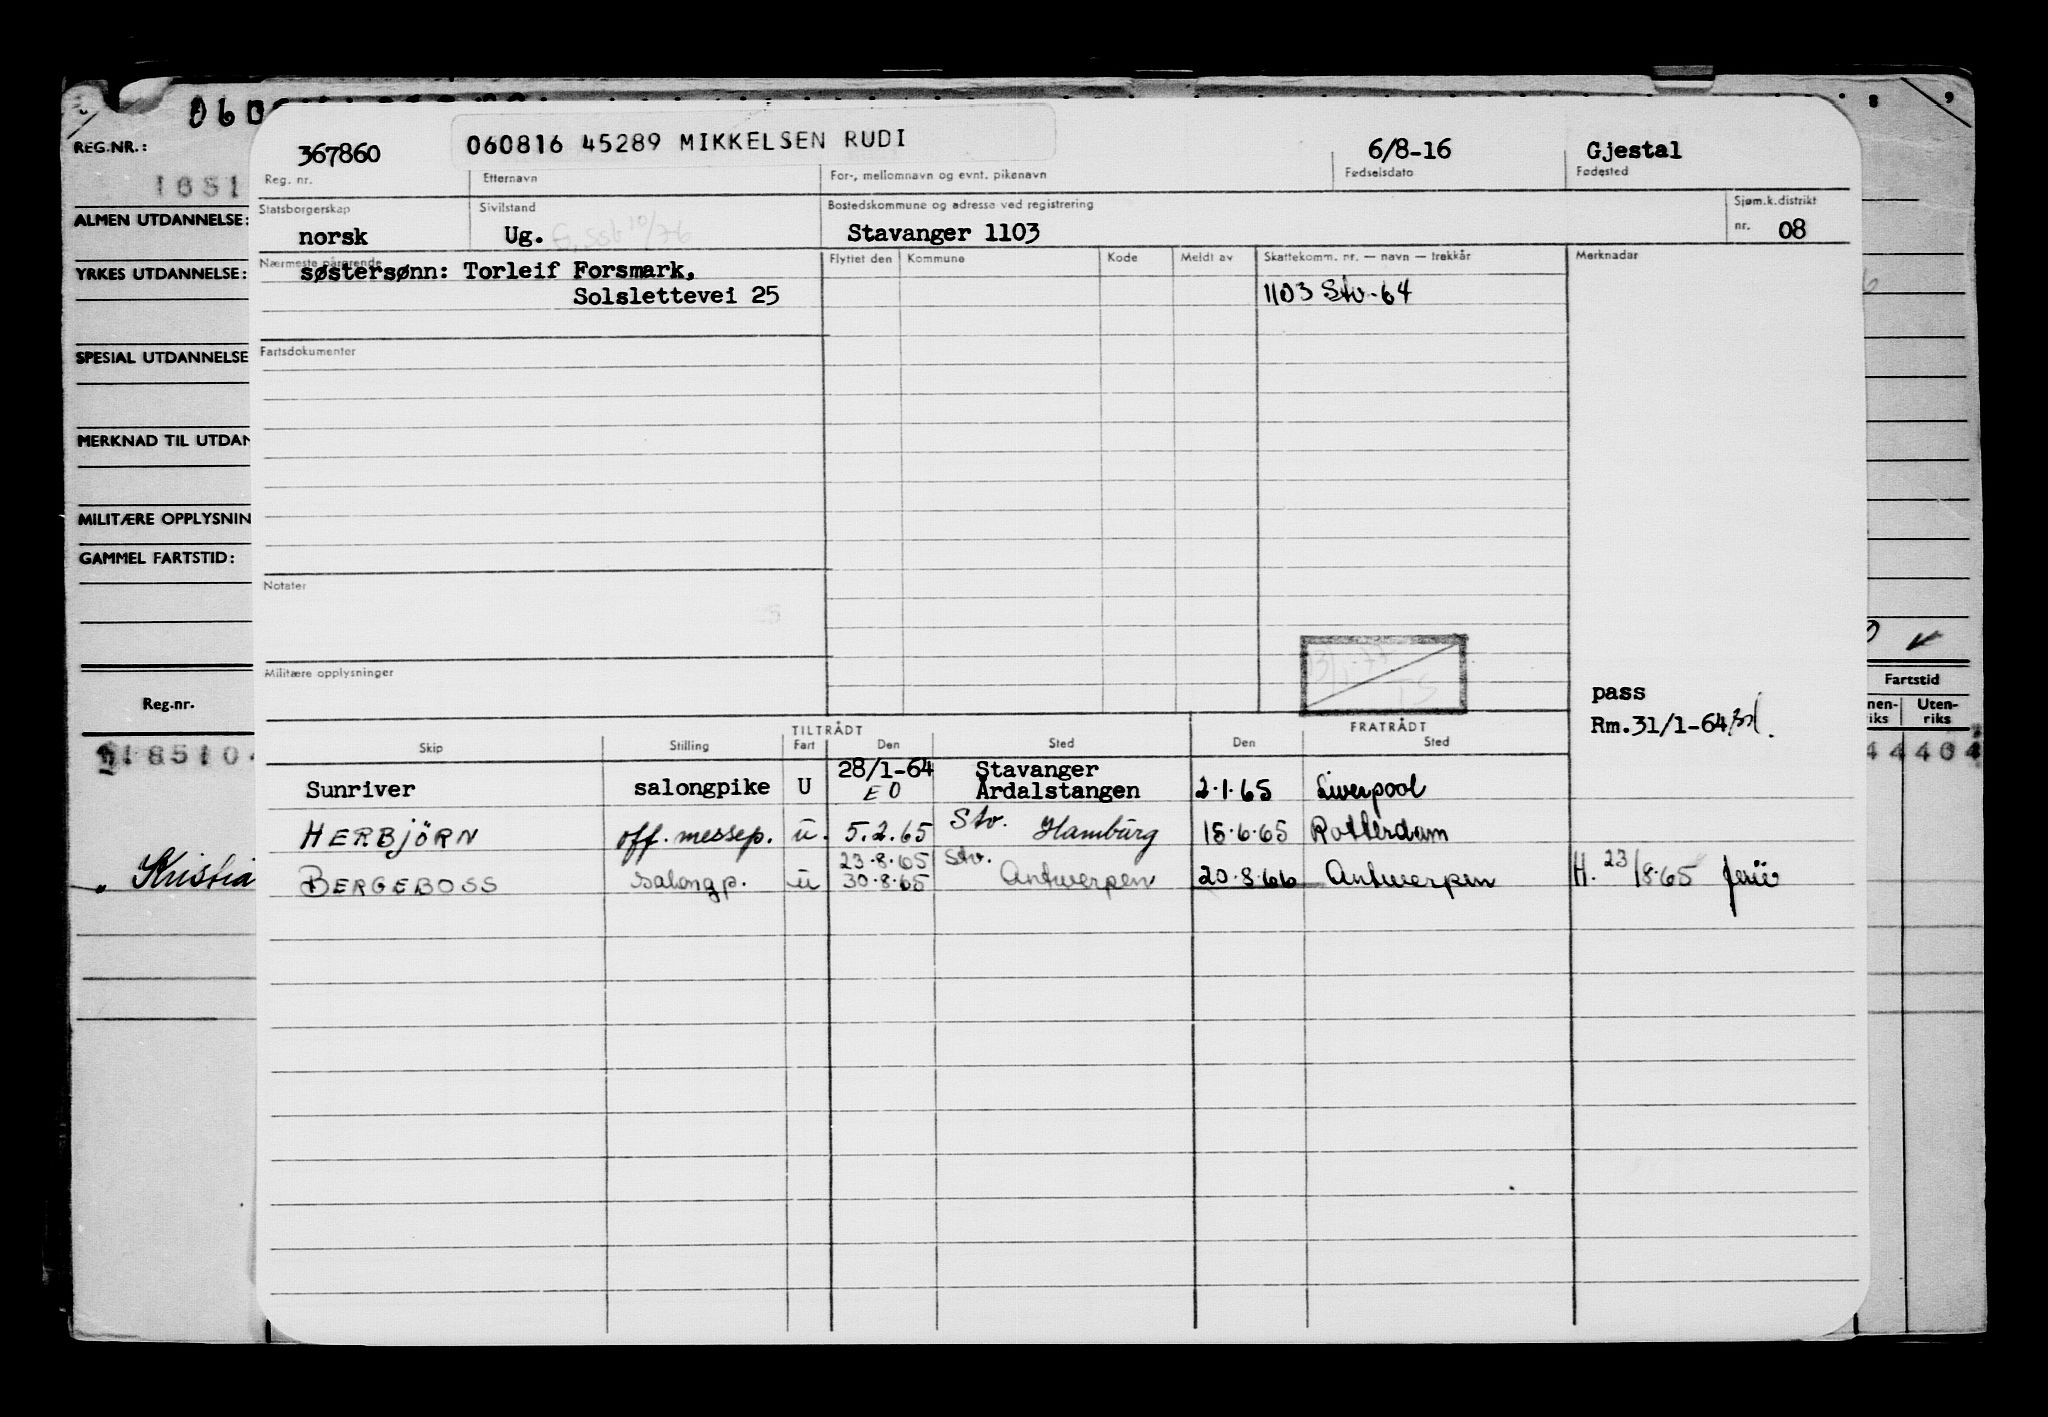 060
REG.NR.:
1651
ALMEN UTDANNELSE:
YRKES UTDANNELSE:
SPESIAL UTDANNELSE
MERKNAD TIL UTDAN
MILITÆRE OPPLYSNIN
GAMMEL FARTSTID:
Reg.nr.
185104
Kristia
367860 060816 45289 MIKKELSEN RUDI 6/8-16 Gjestal
Reg. nr. Etternavn For-, mellomnavn og evnt. pikenavn Fødselsdato Fødested
Statsborgerskap Sivilstand Bostedskommune og adresse ved registrering Sjøm.k.distrikt
norsk Ug. Stavanger 1103 nr. 08
Nærmeste pårørende Flyttet den Kommune Kode Meldt av Skattekomm. nr. — navn — trekkår Merknader
søstersønn: Torleif Forsmark,
Solslettevei 25 1103 Stv-64
Fartsdokumenter
Notater
Militære opplysninger
pass
Rm.31/1-64
TILTRÅDT FRATRÅDT
Skip Stilling Fart Den Sted Den Sted
28/1-64 Stavanger
Sunriver salongpike U EO Årdalstangen 2.1.65 Liverpool
HERBJÖRN off. messep. u. 5.2.65 Stv. Hamburg 15.6.65 Rotterdam
23.8.65 Stv.
BERGEBOSS salongp. u 30.8.65 Antwerpen 20.8.66 Antwerpen H. 23/8.65
Fartstid
nen-
iks
Uten-
riks
44 404